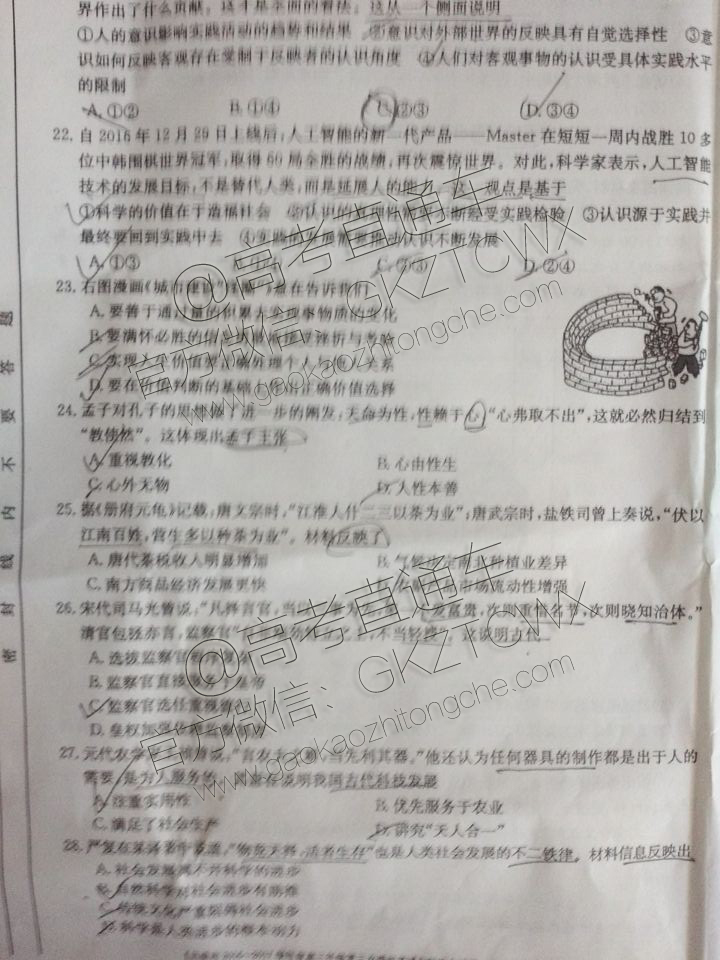 界作出了什么贡献，这才是全面的看法。这从一个侧面说明
①人的意识影响实践活动的趋势和结果 ②意识对外部世界的反映具有自觉选择性 ③意
识如何反映客观存在受制于反映者的认识角度 ④人们对客观事物的认识受具体实践水平
的限制
A. ①② B. ①④ C. ②③ D. ③④
22. 自 2016 年 12 月 29 日上线后，人工智能的新一代产品——Master 在短短一周内战胜 10 多
位中韩围棋世界冠军，取得 60 局全胜的战绩，再次震惊世界。对此，科学家表示，人工智能
技术的发展目标，不是替代人类，而是延展人的能力。这一观点是基于
①科学的价值在于造福社会 ②认识的真理性需要不断经受实践检验 ③认识源于实践并
最终要回到实践中去 ④实践的发展需要推动认识不断发展
A. ①③ C. ②③ D. ②④
23. 右图漫画《城市建设》 意在告诉我们
A. 要善于通过量的积累去实现事物质的变化
B. 要满怀必胜的信 挫折与考验
C. 实现人生价值要正确处理个人与 关系
D. 要在价值判断的基础上作出正确价值选择
24. 孟子对孔子的思想做了进一步的阐发：天命为性，性赖于心，“心弗取不出”，这就必然归结到
“教使然”。这体现出孟子主张
A. 重视教化 B. 心由性生
C. 心外无物 D. 人性本善
25. 据《册府元龟》记载：唐文宗时，“江淮人什二三以茶为业”；唐武宗时，盐铁司曾上奏说，“伏以
江南百姓，营生多以种茶为业”。材料反映了
A. 唐代茶税收入明显增加 B. 气候 南北种植业差异
C. 南方商品经济发展更快 D. 市场流动性增强
26. 宋代司马光曾说：“凡择言官，当以三事为先：第一不爱富贵，次则重惜名节，次则晓知治体。”
清官包拯亦言，监察官 不当轻授”。这说明古代
A. 选拔监察官
B. 监察官直接服务于皇帝
C. 监察官选任重视
D. 皇权加强
27. 元代农学家王祯曾说，“ 当先利其器。”他还认为任何器具的制作都是出于人的
需要，是为人服务的。 旨在说明我国古代科技发展
A. 注重实用性 B. 优先服务于农业
C. 满足了社会生产 D. 讲究“天人合一”
28. 严复在 “物竞天择，适者生存”也是人类社会发展的不二铁律。材料信息反映出
A. 社会发展离不开科学的进步
B. 自然科学对社会进步有助推
C. 传统文化严重阻碍社会进步
D. 科学是人类进步的根本动力
密 封 线 内 不 要 答 题
@高考直通车
官方微信：GKZTCWX
www.gaokaozhitongche.com
@高考直通车
官方微信：GKZTCWX
www.gaokaozhitongche.com